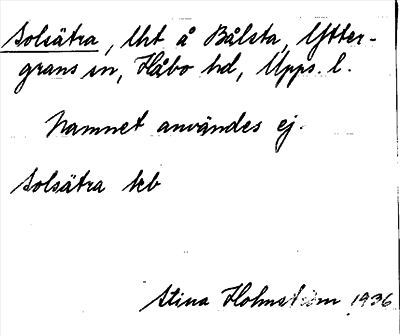 Solsätra, lht å Bålsta, Ytter-
grans sn, Håbo hd, Upps. l.
Namnet användes ej.
Solsätra kb
Stina Holmström 1936